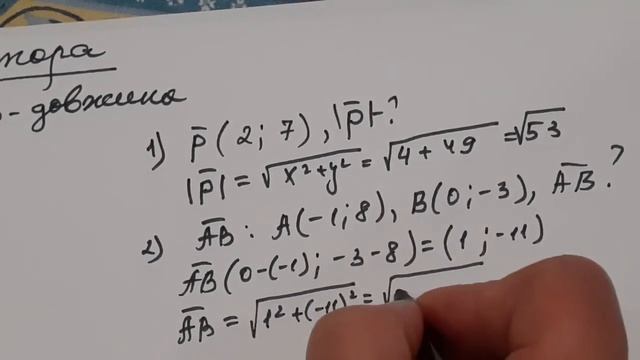 - довжина
1) p̄ (2; 7), |p̄|-?
|p̄| = √(x² + y²) = √(4 + 49) = √53
2) A̅B̅ : A(-1; 8), B(0; -3), A̅B̅ ?
A̅B̅ (0-(-1); -3-8) = (1; -11)
A̅B̅ = √(1² + (-11)²) = √